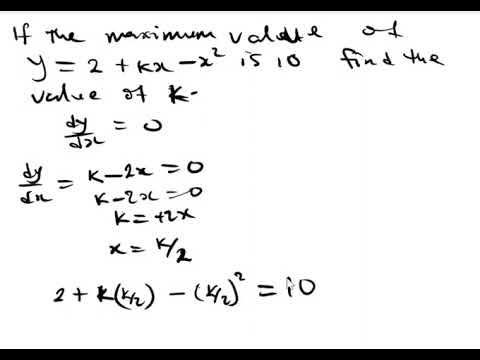 If the maximum value of
y = 2 + kx - x² is 10 find the
value of k.
dy/dx = 0
dy/dx = k - 2x = 0
k - 2x = 0
k = +2x
x = k/2
2 + k(k/2) - (k/2)² = 10